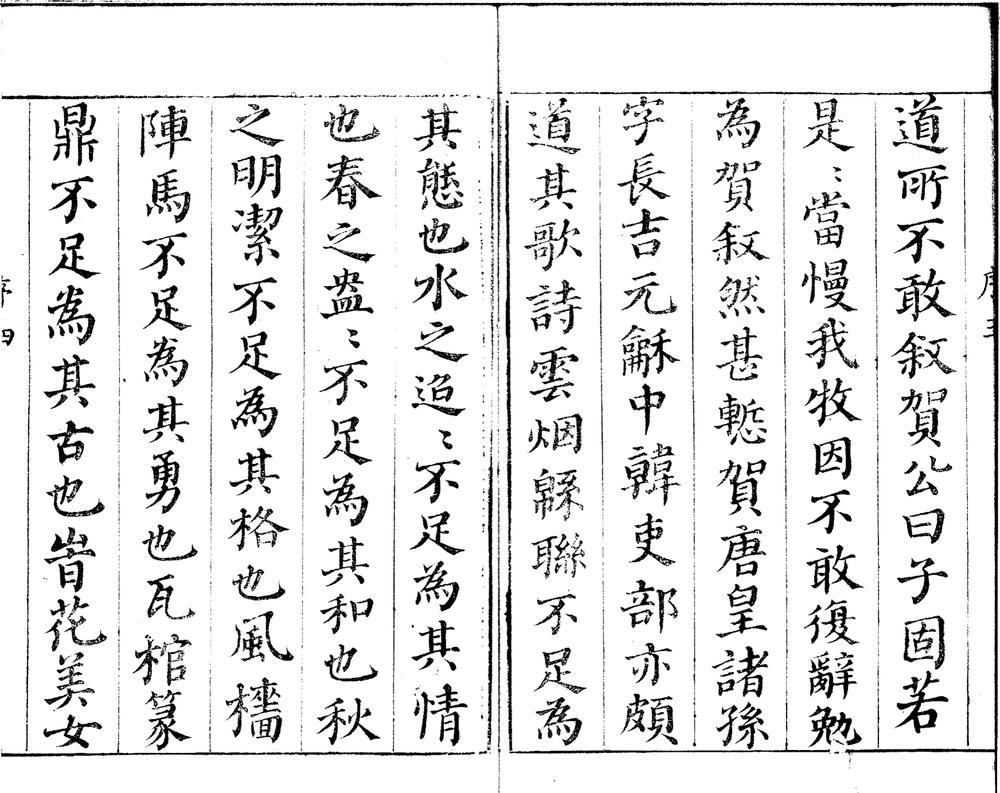 道所不敢叙賀公曰子固若
是〻當慢我牧因不敢復辭勉
為賀叙然甚慙賀唐皇諸孫
字長吉元龢中韓吏部亦頗
道其歌詩雲烟綿聯不足為
其態也水之迢〻不足為其情
也春之盎〻不足為其和也秋
之明潔不足為其格也風檣
陣馬不足為其勇也瓦棺篆
鼎不足為其古也旹花美女
序四